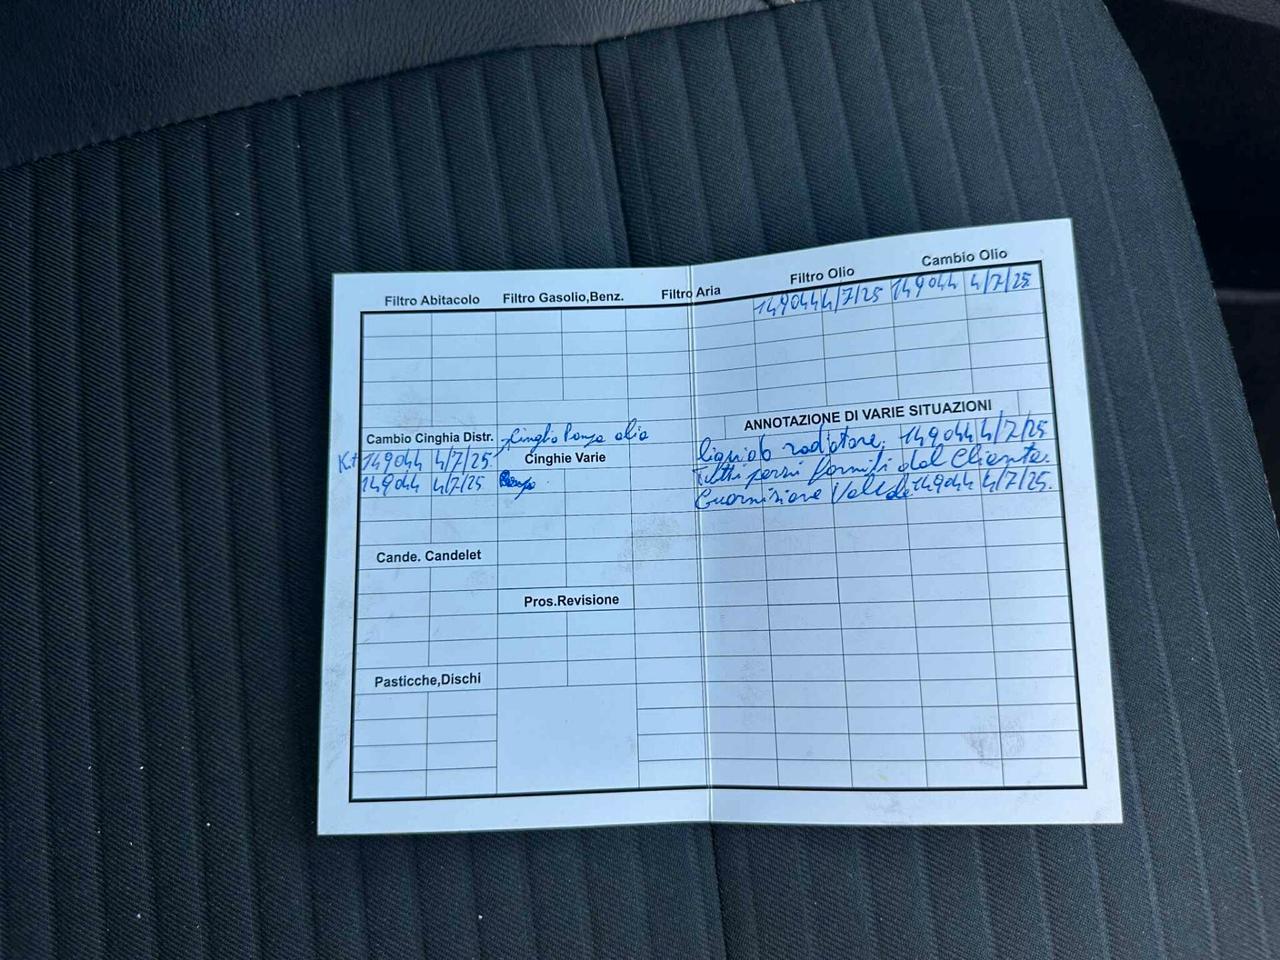 Filtro Abitacolo Filtro Gasolio,Benz. Filtro Aria Filtro Olio Cambio Olio
149044 4/7/25 149044 4/7/25
Cambio Cinghia Distr. Cinghia Pompa olio
Kit 149044 4/7/25
149044 4/7/25
Cinghie Varie
Cande. Candelet
Pros.Revisione
Pasticche,Dischi
ANNOTAZIONE DI VARIE SITUAZIONI
liquido radiatore 149044 4/7/25
Tutti pezzi forniti dal Cliente.
Guarnizione 149044 4/7/25.